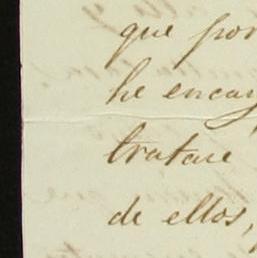 que por
he encar
tratare
de ellos,